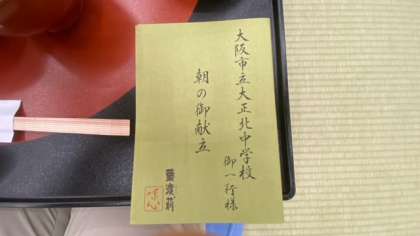 大阪市立大正北中学校
御一行様
朝の御献立